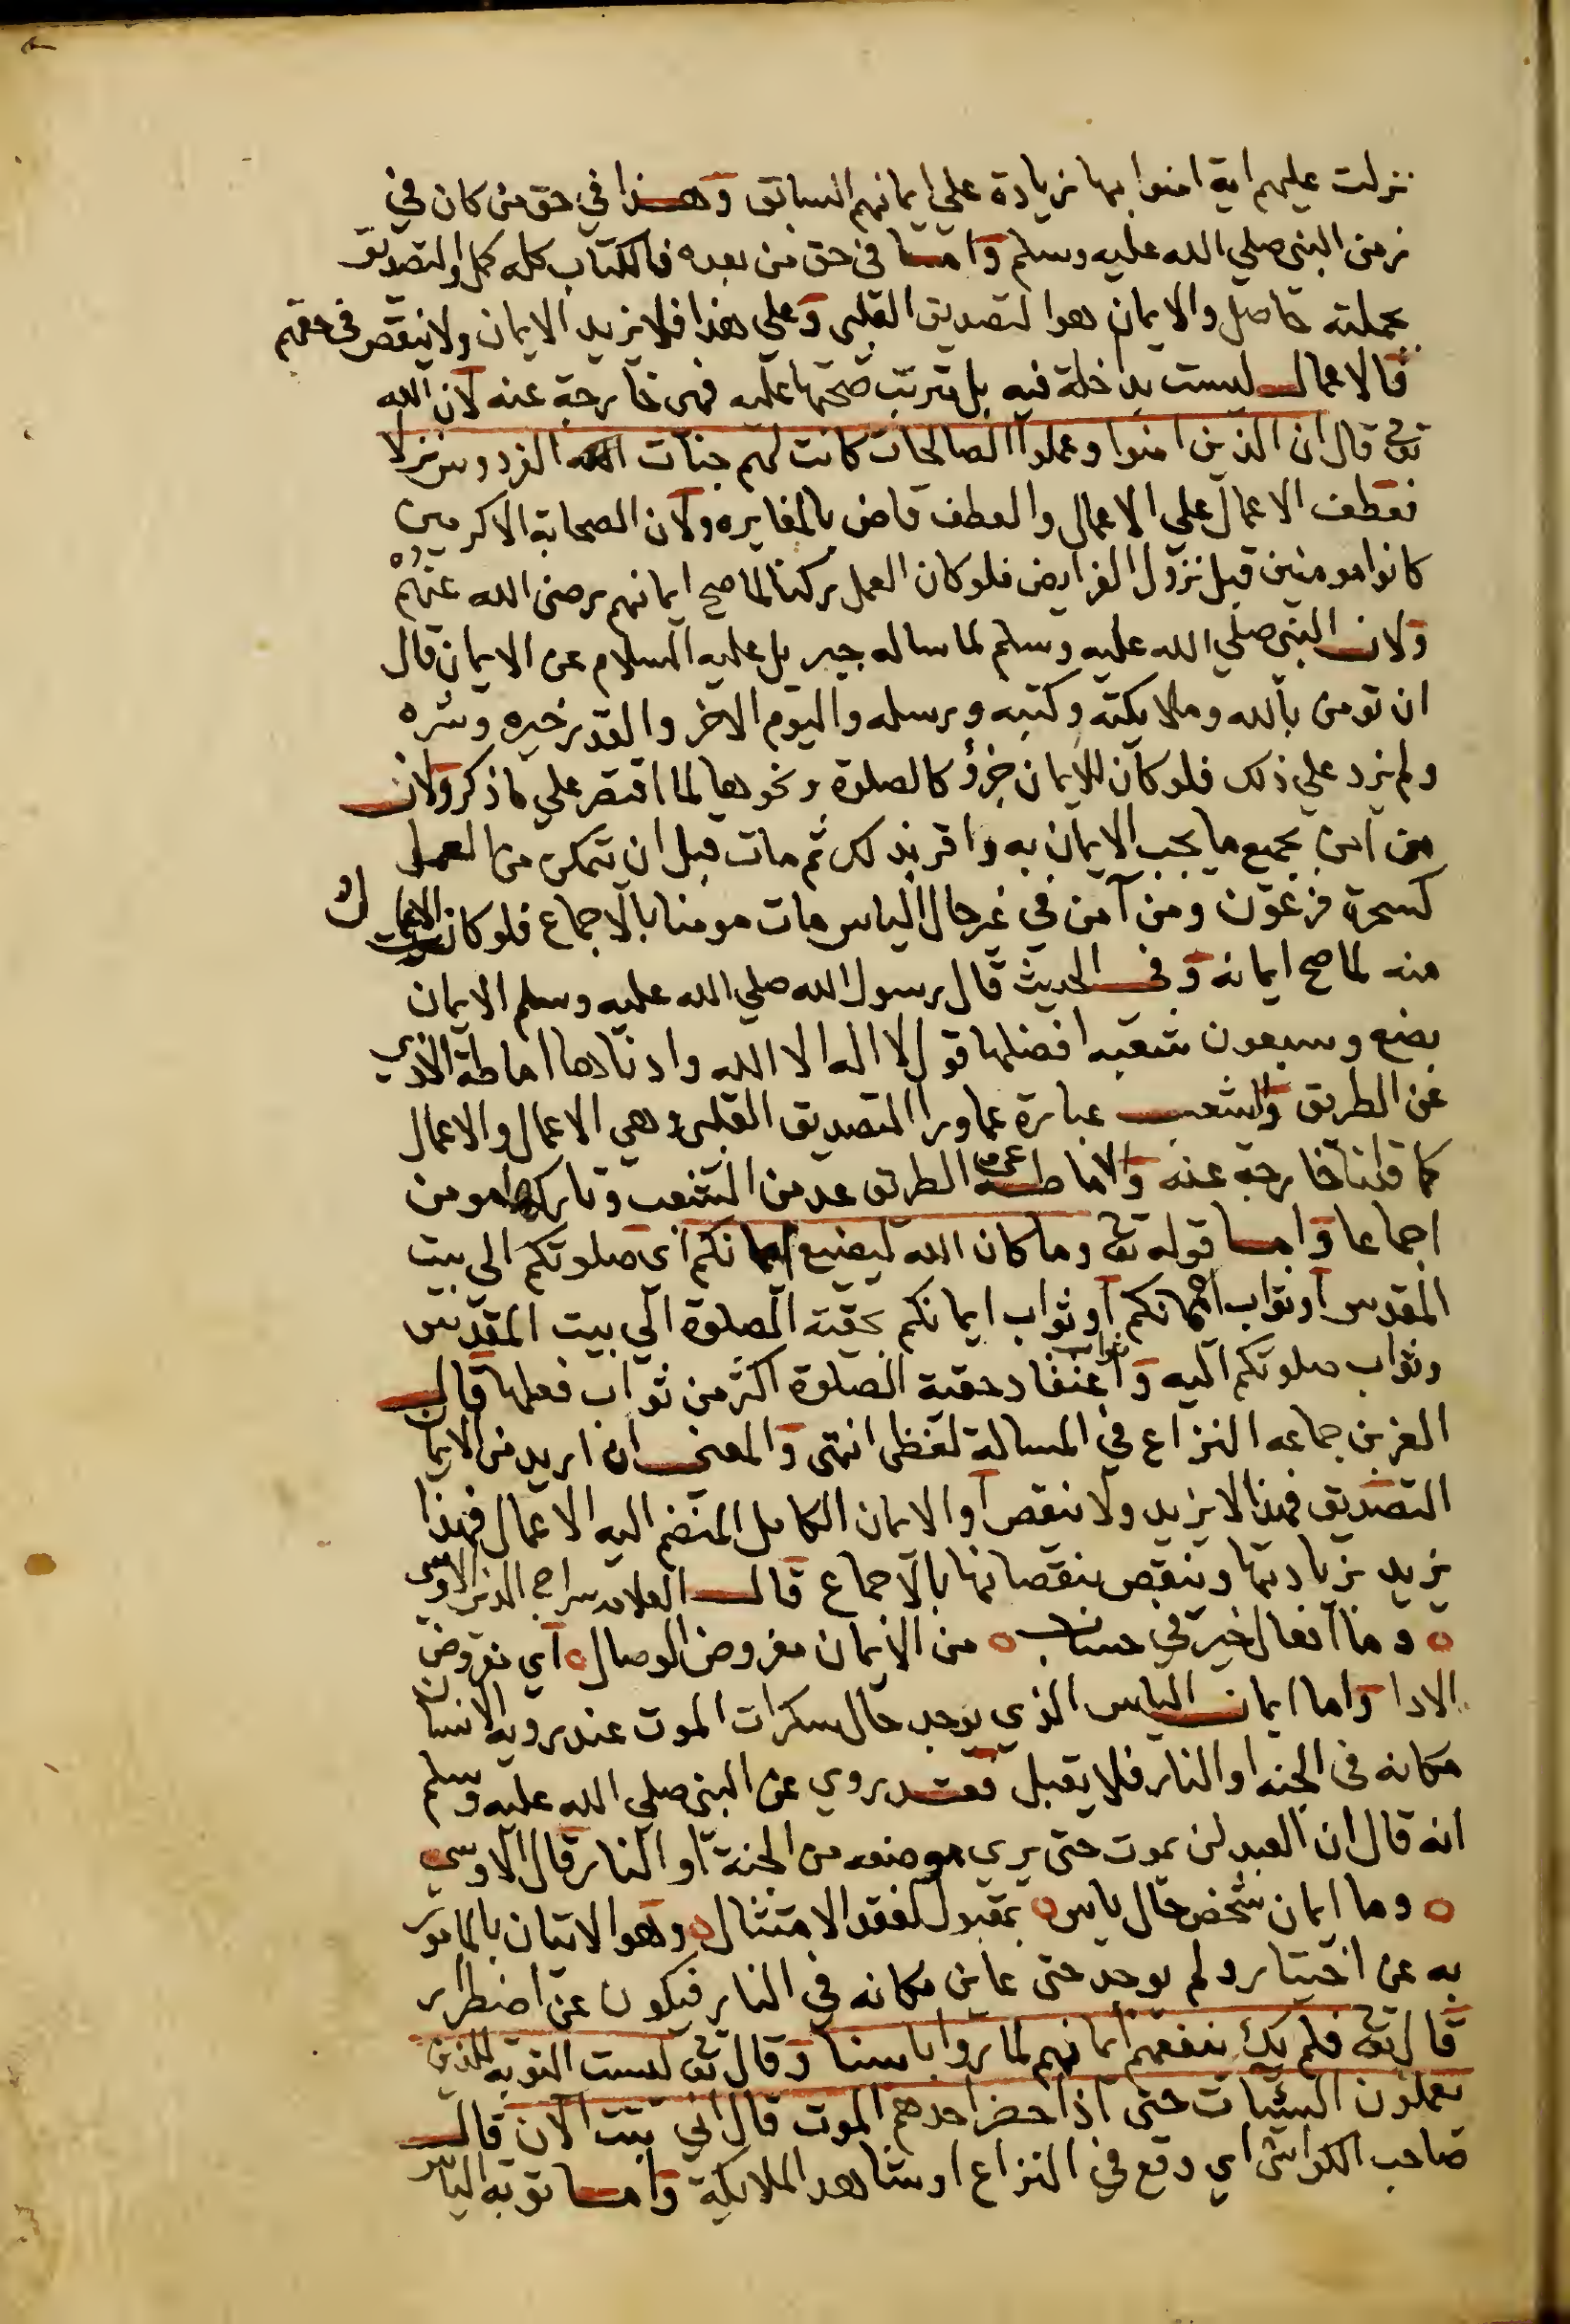 نزلت عليهم اية امنوا بها زيادة علي ايمانهم السابق وهذا في حق من كان في
زمن النبي صلي الله عليه وسلم واما في حق من بعده فالكتاب كله كمل والتصديق
بجملته حاصل والايمان هو التصديق القلبي وعلي هذا فلا يزيد الايمان ولا ينقص في حقهم
فالاعمال ليست بداخلة فيه بل يترتب صحتها عليه فهي خارجة عنه لان الله
تعالى قال ان الذين امنوا وعملوا الصالحات كانت لهم جنات الفردوس نزلا
فعطف الاعمال علي الاعمال والعطف قاض بالمغايره ولان الصحابة الاكرمين
كانوا مومنين قبل نزول الفرايض فلو كان العمل ركنا لما صح ايمانهم رضى الله عنهم
ولان النبي صلي الله عليه وسلم لما ساله جبريل عليه السلام عن الايمان قال
ان تومن بالله وملايكته وكتبه ورسله واليوم الاخر والقدر خيره وشره
ولم يزد علي ذلك فلو كان للايمان جزؤ كالصلوة ونحوها لما اقتصر علي ما ذكر ولان
من امن بجميع ما يجب الايمان به واقر بذلك ثم مات قبل ان يتمكن من العمل
كسحرة فرعون ومن آمن في غير حال الياس مات مومنا بالاجماع فلو كان الاعمال
منه لما صح ايمانه وفي الحديث قال رسول الله صلي الله عليه وسلم الايمان
بضع وسبعون شعبه افضلها قول لا اله الا الله وادناها اماطة الاذي
عن الطريق والشعب عبارة عما ورا التصديق القلبي وهي الاعمال والاعمال
كما قلنا خارجة عنه والاماطة عن الطريق عد من الشعب وتاركها مومن
اجماعا واما قوله تعالى وما كان الله ليضيع ايمانكم اي صلوتكم الي بيت
المقدس او ثواب ايمانكم او ثواب ايمانكم بحقية الصلوة الي بيت المقدس
وثواب صلوتكم اليه وثواب اعتقاد حقية الصلوة اكثر من ثواب فعلها قال
العز بن جماعه النزاع في المسالة لفظي انتهى والمعنى ان اريد من الايمان
التصديق فهذا لا يزيد ولا ينقص او الايمان الكامل المنضم اليه الاعمال فهذا
يزيد بزيادتها وينقص بنقصانها بالاجماع قال العلامه سراج الدين الاوسي
وما افعال خير في حساب من الايمان مفروض الوصال اي مفروض
الادا واما ايمان الياس الذي يوجد حال سكرات الموت عند روية الانسان
مكانه في الجنه او النار فلا يقبل فقد روي عن النبي صلي الله عليه وسلم
انه قال ان العبد لن يموت حتى يري موضعه من الجنة او النار قال الاوسي
وما ايمان شخص حال ياس بمقبول لفقد الامتثال وهو الاتيان بالمامور
به عن اختيار ولم يوجد حتى عاين مكانه في النار فيكون عن اضطرار
قال تعالى فلم يك ينفعهم ايمانهم لما راوا باسنا وقال تعالى ليست التوبه للذين
يعملون السيئات حتى اذا حضر احدهم الموت قال اني تبت الان قال
صاحب الكواشى اي وقع في النزاع او شاهد الملايكة واما توبة الياس